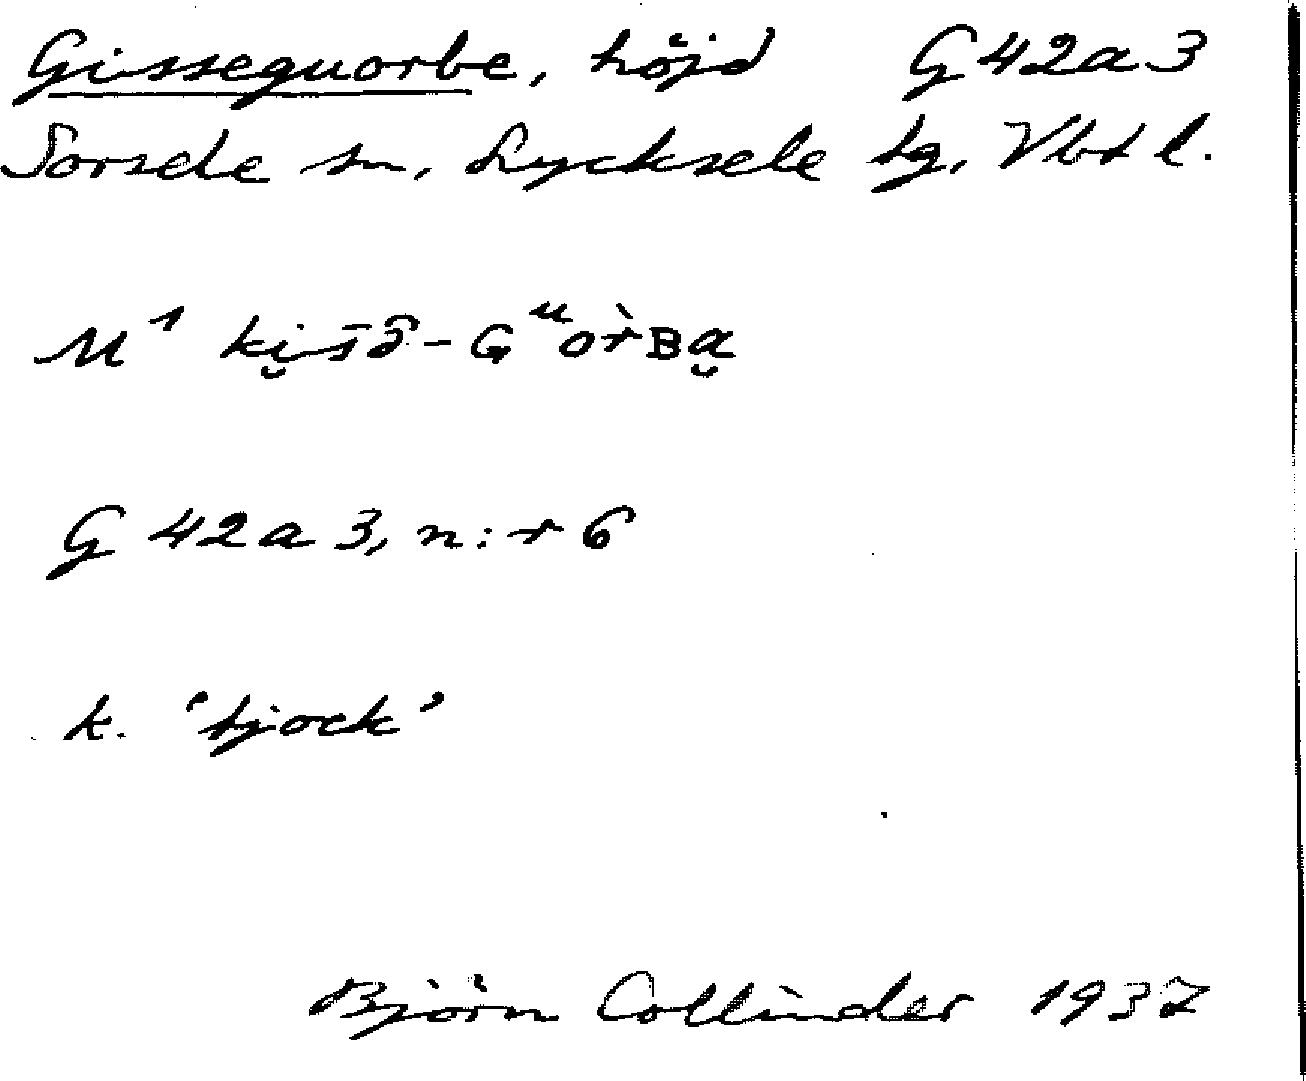 Gisseguorbe, höjd G 42 a 3
Sorsele sn, Lycksele tg, Vbt l.
M¹ ki̮s̄ə̑ - Gᵘor̀Ba̮
G 42 a 3, n:r 6
k. 'tjock'
Björn Collinder 1937